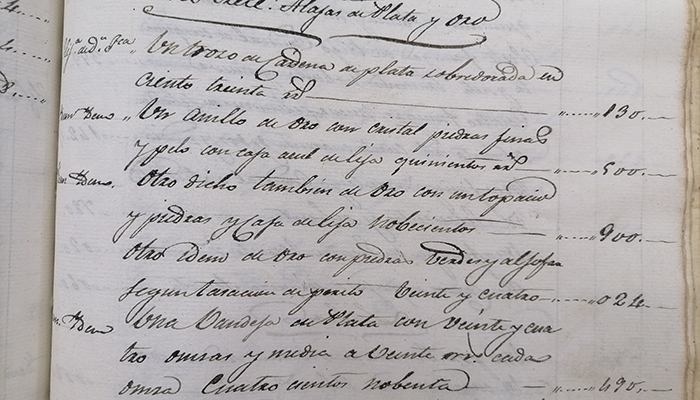 Alajas de Plata y Oro
Un trozo de Cadena de plata sobredorada en
ciento treinta rs 130.
Un anillo de oro con cristal piedras finas
y pelo con caja azul de lija quinientos rs 500.
Otro dicho tambien de oro con un topacio
y piedras y Caja de lija nobecientos 900.
Otro idem de oro con piedras verdes y aljofar
segun tasacion de perito veinte y cuatro 024
Una Vandeja de Plata con Veinte y cua
tro onzas y media a Veinte rs. cada
onza Cuatro cientos nobenta 490.